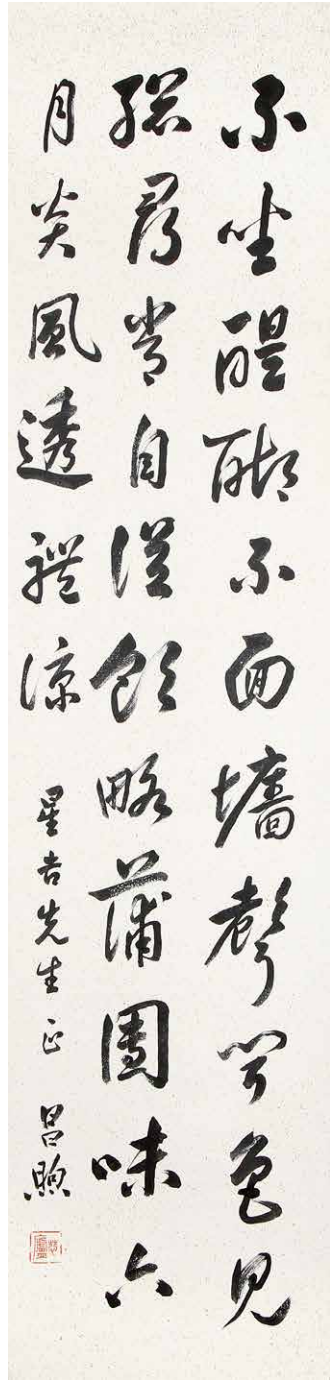 不坐醍醐不面墻聲聞色見
總尋常自從領略蒲團味六
月炎風透體涼
星吉先生正 呂煦